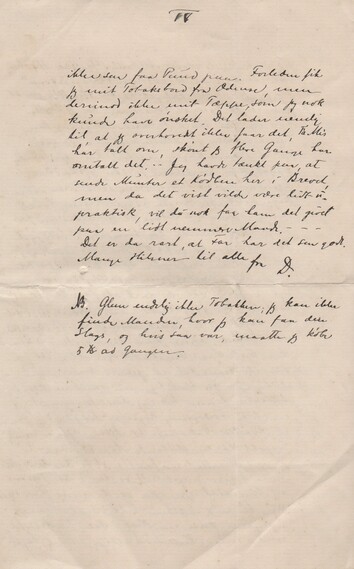 ikke saa faa Pund
Forleden fik
jeg mit Tobaksbord fra Odense, men
derimod ikke mit Tæppe, som jeg nok
kunde have ønsket. Det lader nemlig
til, at jeg overhovedt ikke faar det,
har talt om, skønt jeg flere Gange har
omtalt det. - Jeg havde tænkt paa, at
sende Münster et her i Brevet,
men da det vist vilde være lidt u-
praktisk, vil du nok for ham det
paa en lidt nemmere Maade. - - -
Det er da rart, at Far har det saa godt.
Mange Hilsner til alle fra D.
NB. Glem endelig ikke Tobakken, jeg kan ikke
finde Manden, hvor jeg kan faa den
Slags, og hvis saa var, maatte jeg købe
5 ad Gangen.